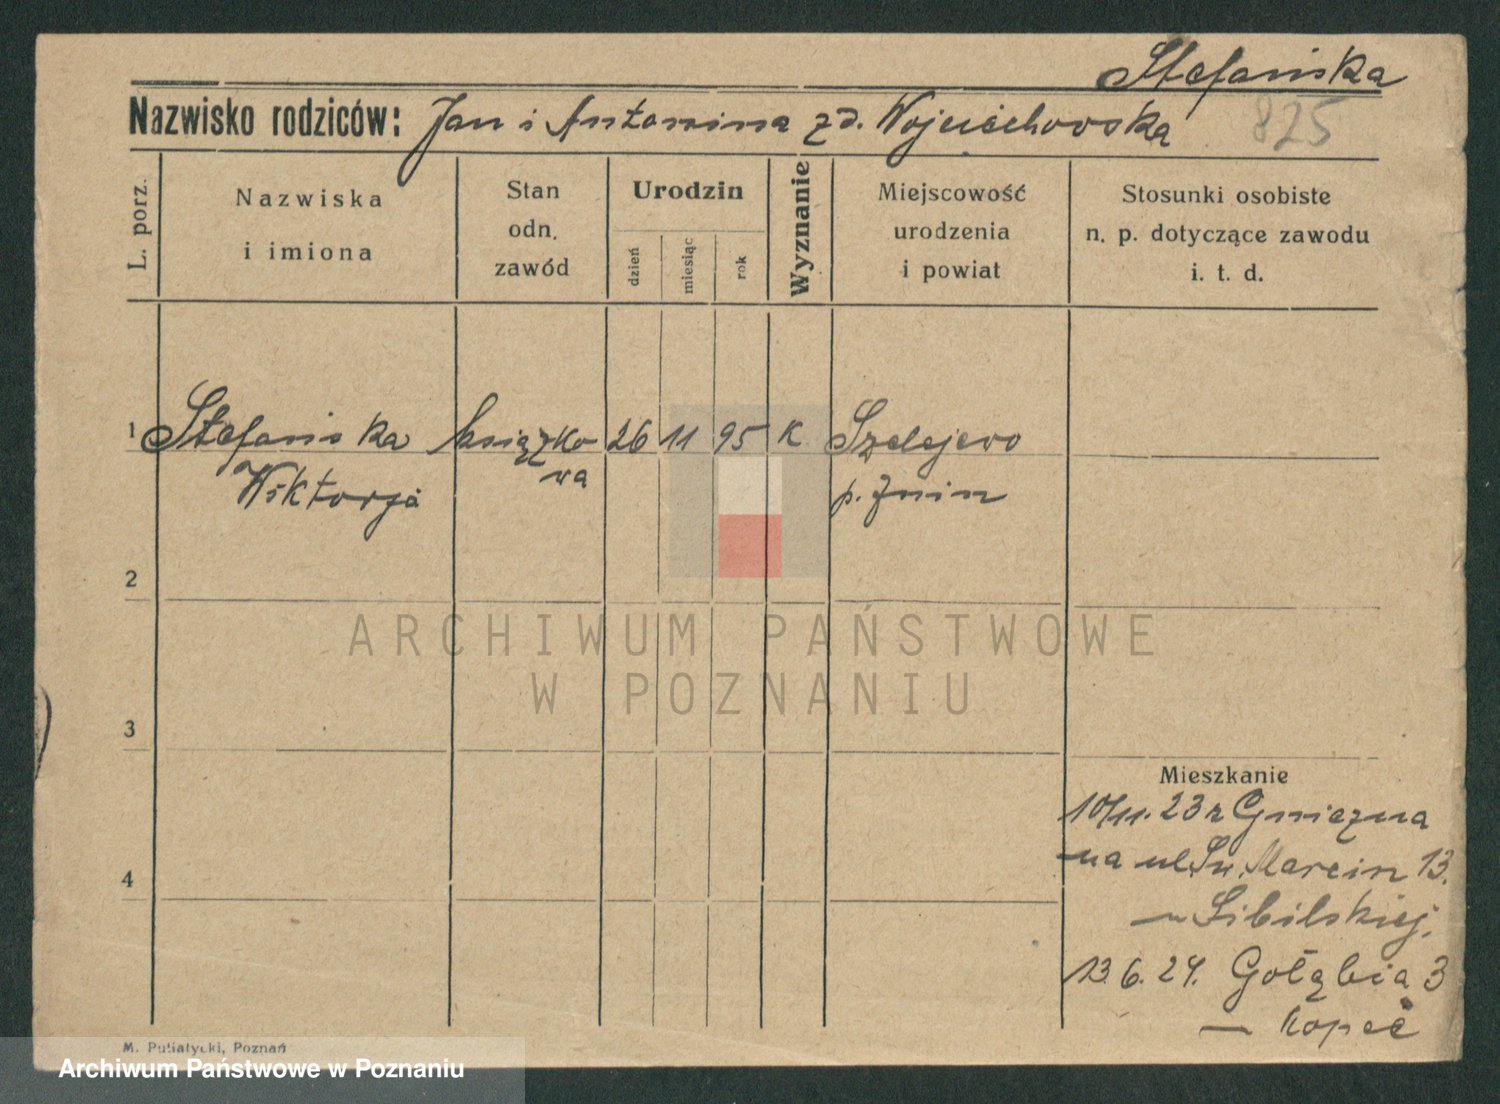 Stefańska
Nazwisko rodziców: Jan i Antonina zd. Wojciechowska 825
L. porz.
Nazwiska
i imiona
Stan
odn.
zawód
Urodzin
dzień
miesiąc
rok
Wyznanie
Miejscowość
urodzenia
i powiat
Stosunki osobiste
n. p. dotyczące zawodu
i. t. d.
1 Stefańska książko 26 11 95 K Szelejewo
Wiktorja wa p. Żnin
2
3
4
Mieszkanie
10/11.23 z Gniezna
na ul. Św. Marcin 13.
u Sibilskiej.
13.6.24. Gołębia 3
Kopeć
ARCHIWUM PAŃSTWOWE
W POZNANIU
M. Pusiatycki, Poznań
Archiwum Państwowe w Poznaniu